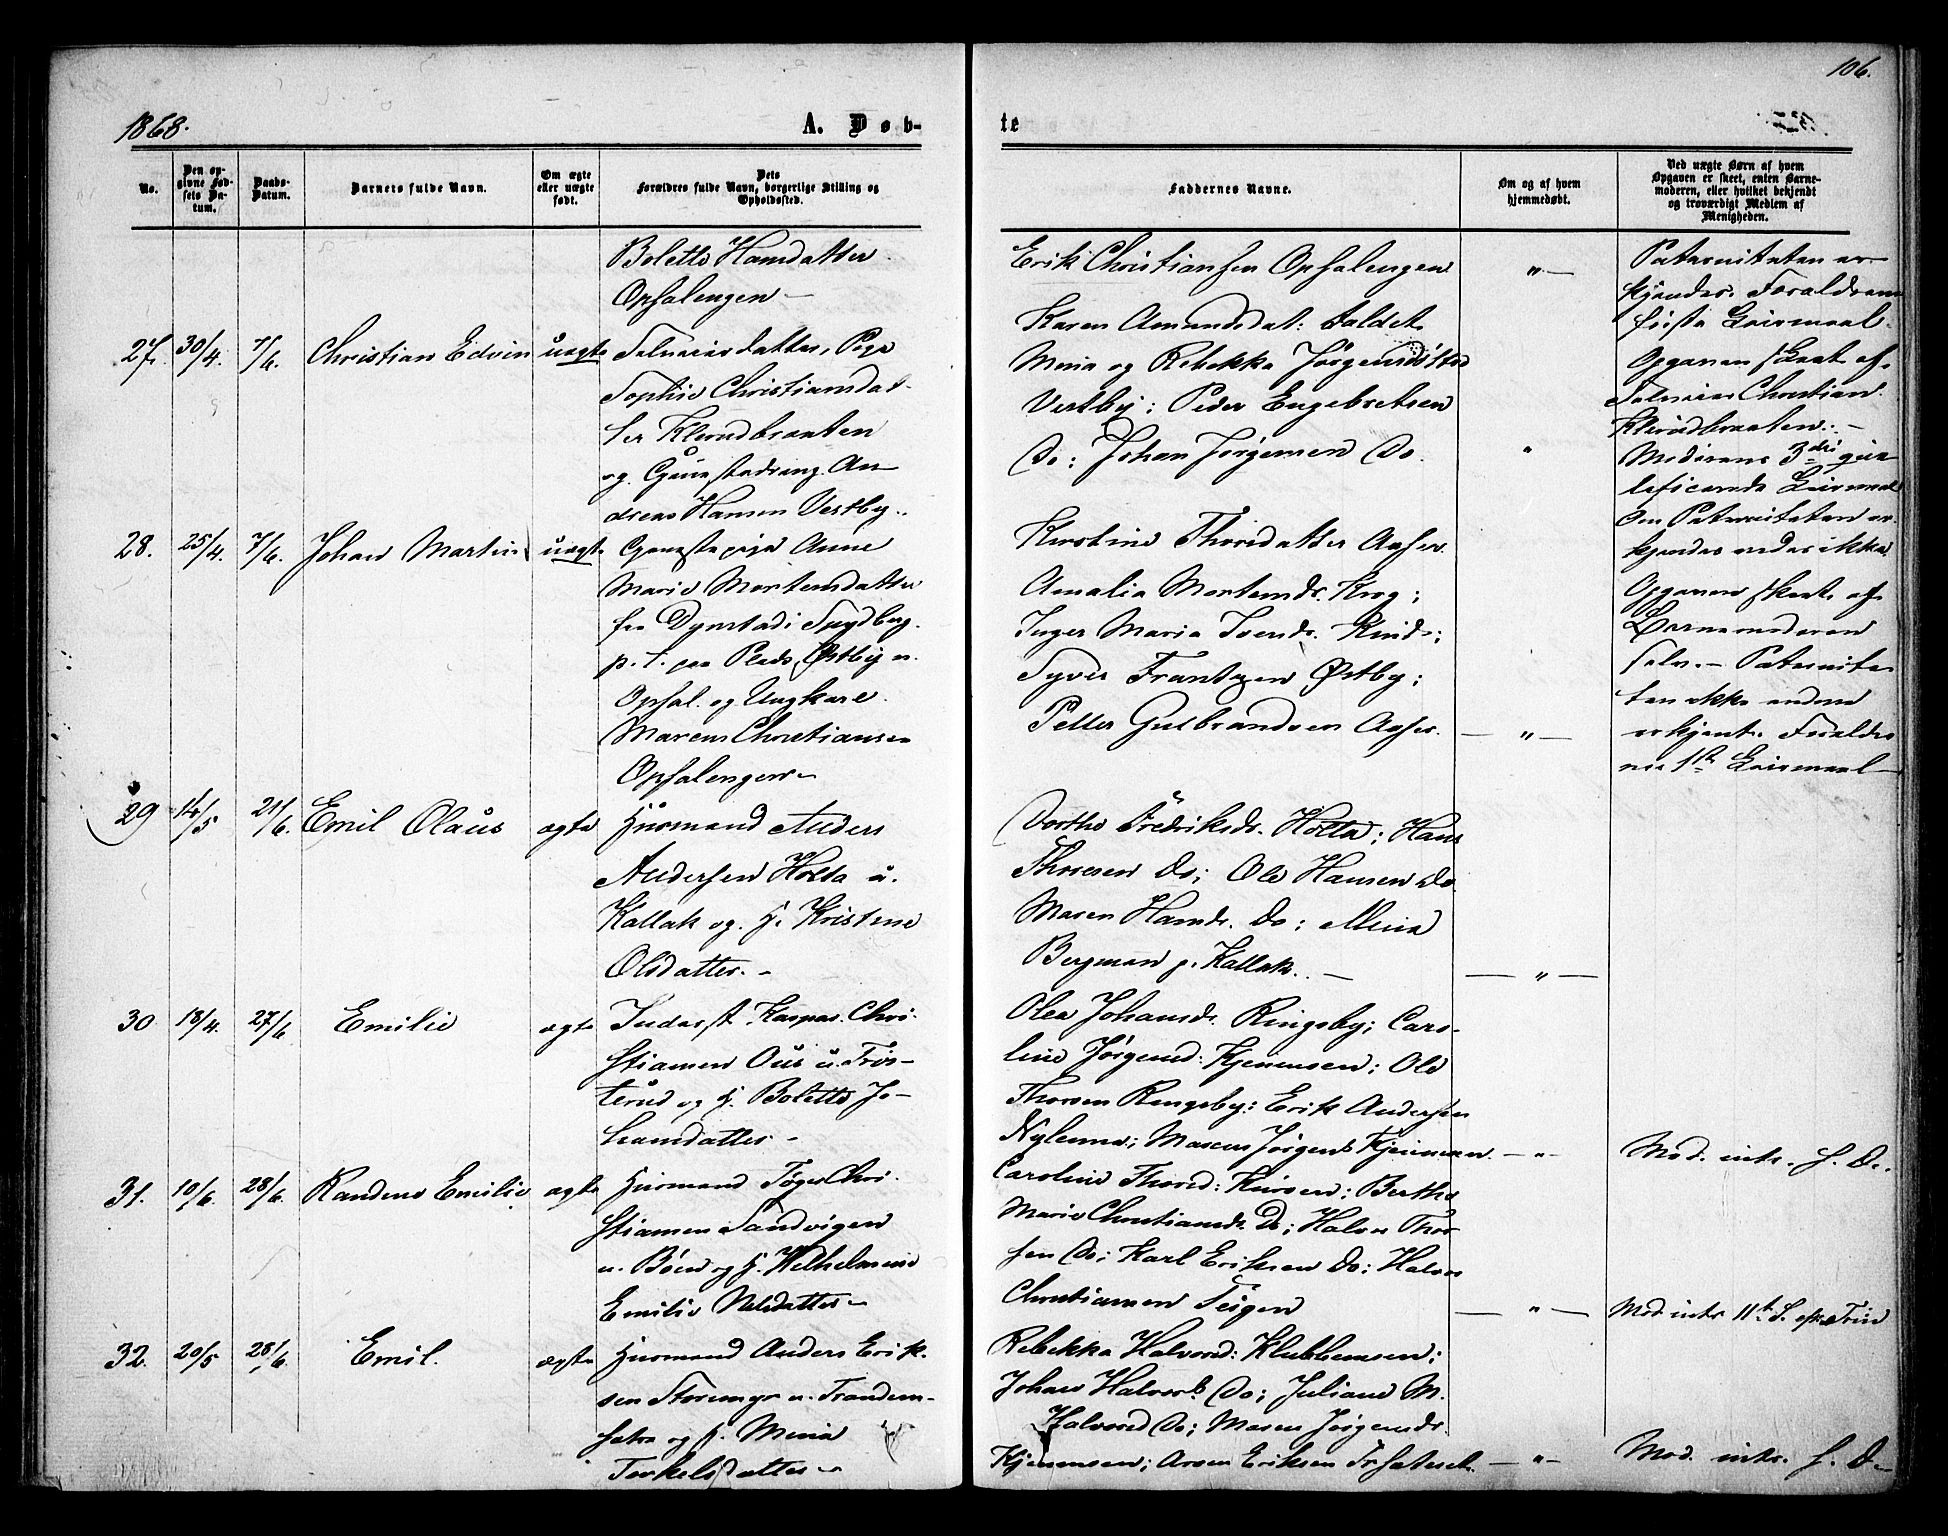 106.
1868.
A. Døb-
te
No.
Den op-
givne Fød-
sels Da-
tum.
Daabs-
Datum.
Barnets fulde Navn.
Om ægte
eller uægte
født.
Dets
Forældres fulde Navn, borgerlige Stilling og
Opholdssted.
Faddernes Navne.
Om og af hvem
hjemmedøbt.
Ved uægte Børn af hvem
Opgaven er skeet, enten Barne-
moderen, eller hvilket bekjendt
og troværdigt Medlem af
Menigheden.
Bolette Hansdatter
Opsalengen –
Erik Christiansen Opsalengen
–"–
Pateruiteten er-
kjendes. Forældrenes
første Leiermaal.
27. 30/4. 7/6. Christian Edvin uægte Pige
Sophie Christiansdat-
ter Klerudbraaten
og Tjenestedreng An-
dreas Hansen Vestby.
Karen Amundsdat:
Mina og Rebekka Jørgens
Vestby; Peder Engebretsen
Do: Johan Jørgensen Do.
"
Opgaven skeet af
Christian
Klerudbraaten. –
Moderens 3die qua-
lificerede Leiermaal
om Paterniteten er-
kjendes vides ikke.
28. 25/4. 7/6. Johan Martin uægte Tjenestepige Anne
Marie Mortensdatter
fra Spydberg.
p. t. paa Plads Østby u.
Opsal. og Ungkarl
Marcus Christiansen
Opsalengen –
Kirstine Thorsdatter
Amalia Mortensdr. Krog;
Inger Maria Svends.
Syver Frantzen Østby;
Petter Gulbrandsen
–"–
Opgaven skeet af
Barnemoderen
selv. – Paternite-
ten ikke endnu
erkjent. Foræl-
nes 1ste Leiermaal –
29 14/5 21/6. Emil Olaus ægte Husmand Anders
Andersen Holta u.
Kallak og H. Kristine
Olsdatter. –
Dorthe Fredriksdr. Holta; Hans
Thoresen Do; Ole Hansen Do
Maren Hansdr. Do; Mina
Bergman p. Kallak. –
–"–
30 18/4. 27/6 Emilie ægte Inderst Kaspar Chri-
stiansen Ous u. Trøs-
terud og H. Bolette Jo-
hansdatter –
Olea Johansdr. Ringsby; Caro-
line Jørgensd: Kjennsen; Ole
Thorsen Ringsby; Erik Andersen
Marcus Jørgens
–"–
Mod. intr. s. D.
31. 10/6. 28/6. Randine Emilie ægte Husmand Chri-
stiansen Sandvigen
u. Bøen og H. Wilhelmine
Emilie Nilsdatter –
Caroline Thorsd: Bertha
Marie Christiansdr. Do; Halvor Thor-
sen Do; Karl Eriksen Do; Halvor
Christiansen
–"–
Mod. intr. 11te S. eft. Trin
32. 20/5 28/6. Emil. ægte Husmand Anders Erik-
sen Storemyr u. Trandem-
sætra og H. Mina
Terkelsdatter –
Rebekka Halvorsd: Klubbemsen;
Johan Halvors. Do; Juliane M.
Halvorsd Do; Maren Jørgensdr.
–"–
Mod. intr. s. D.